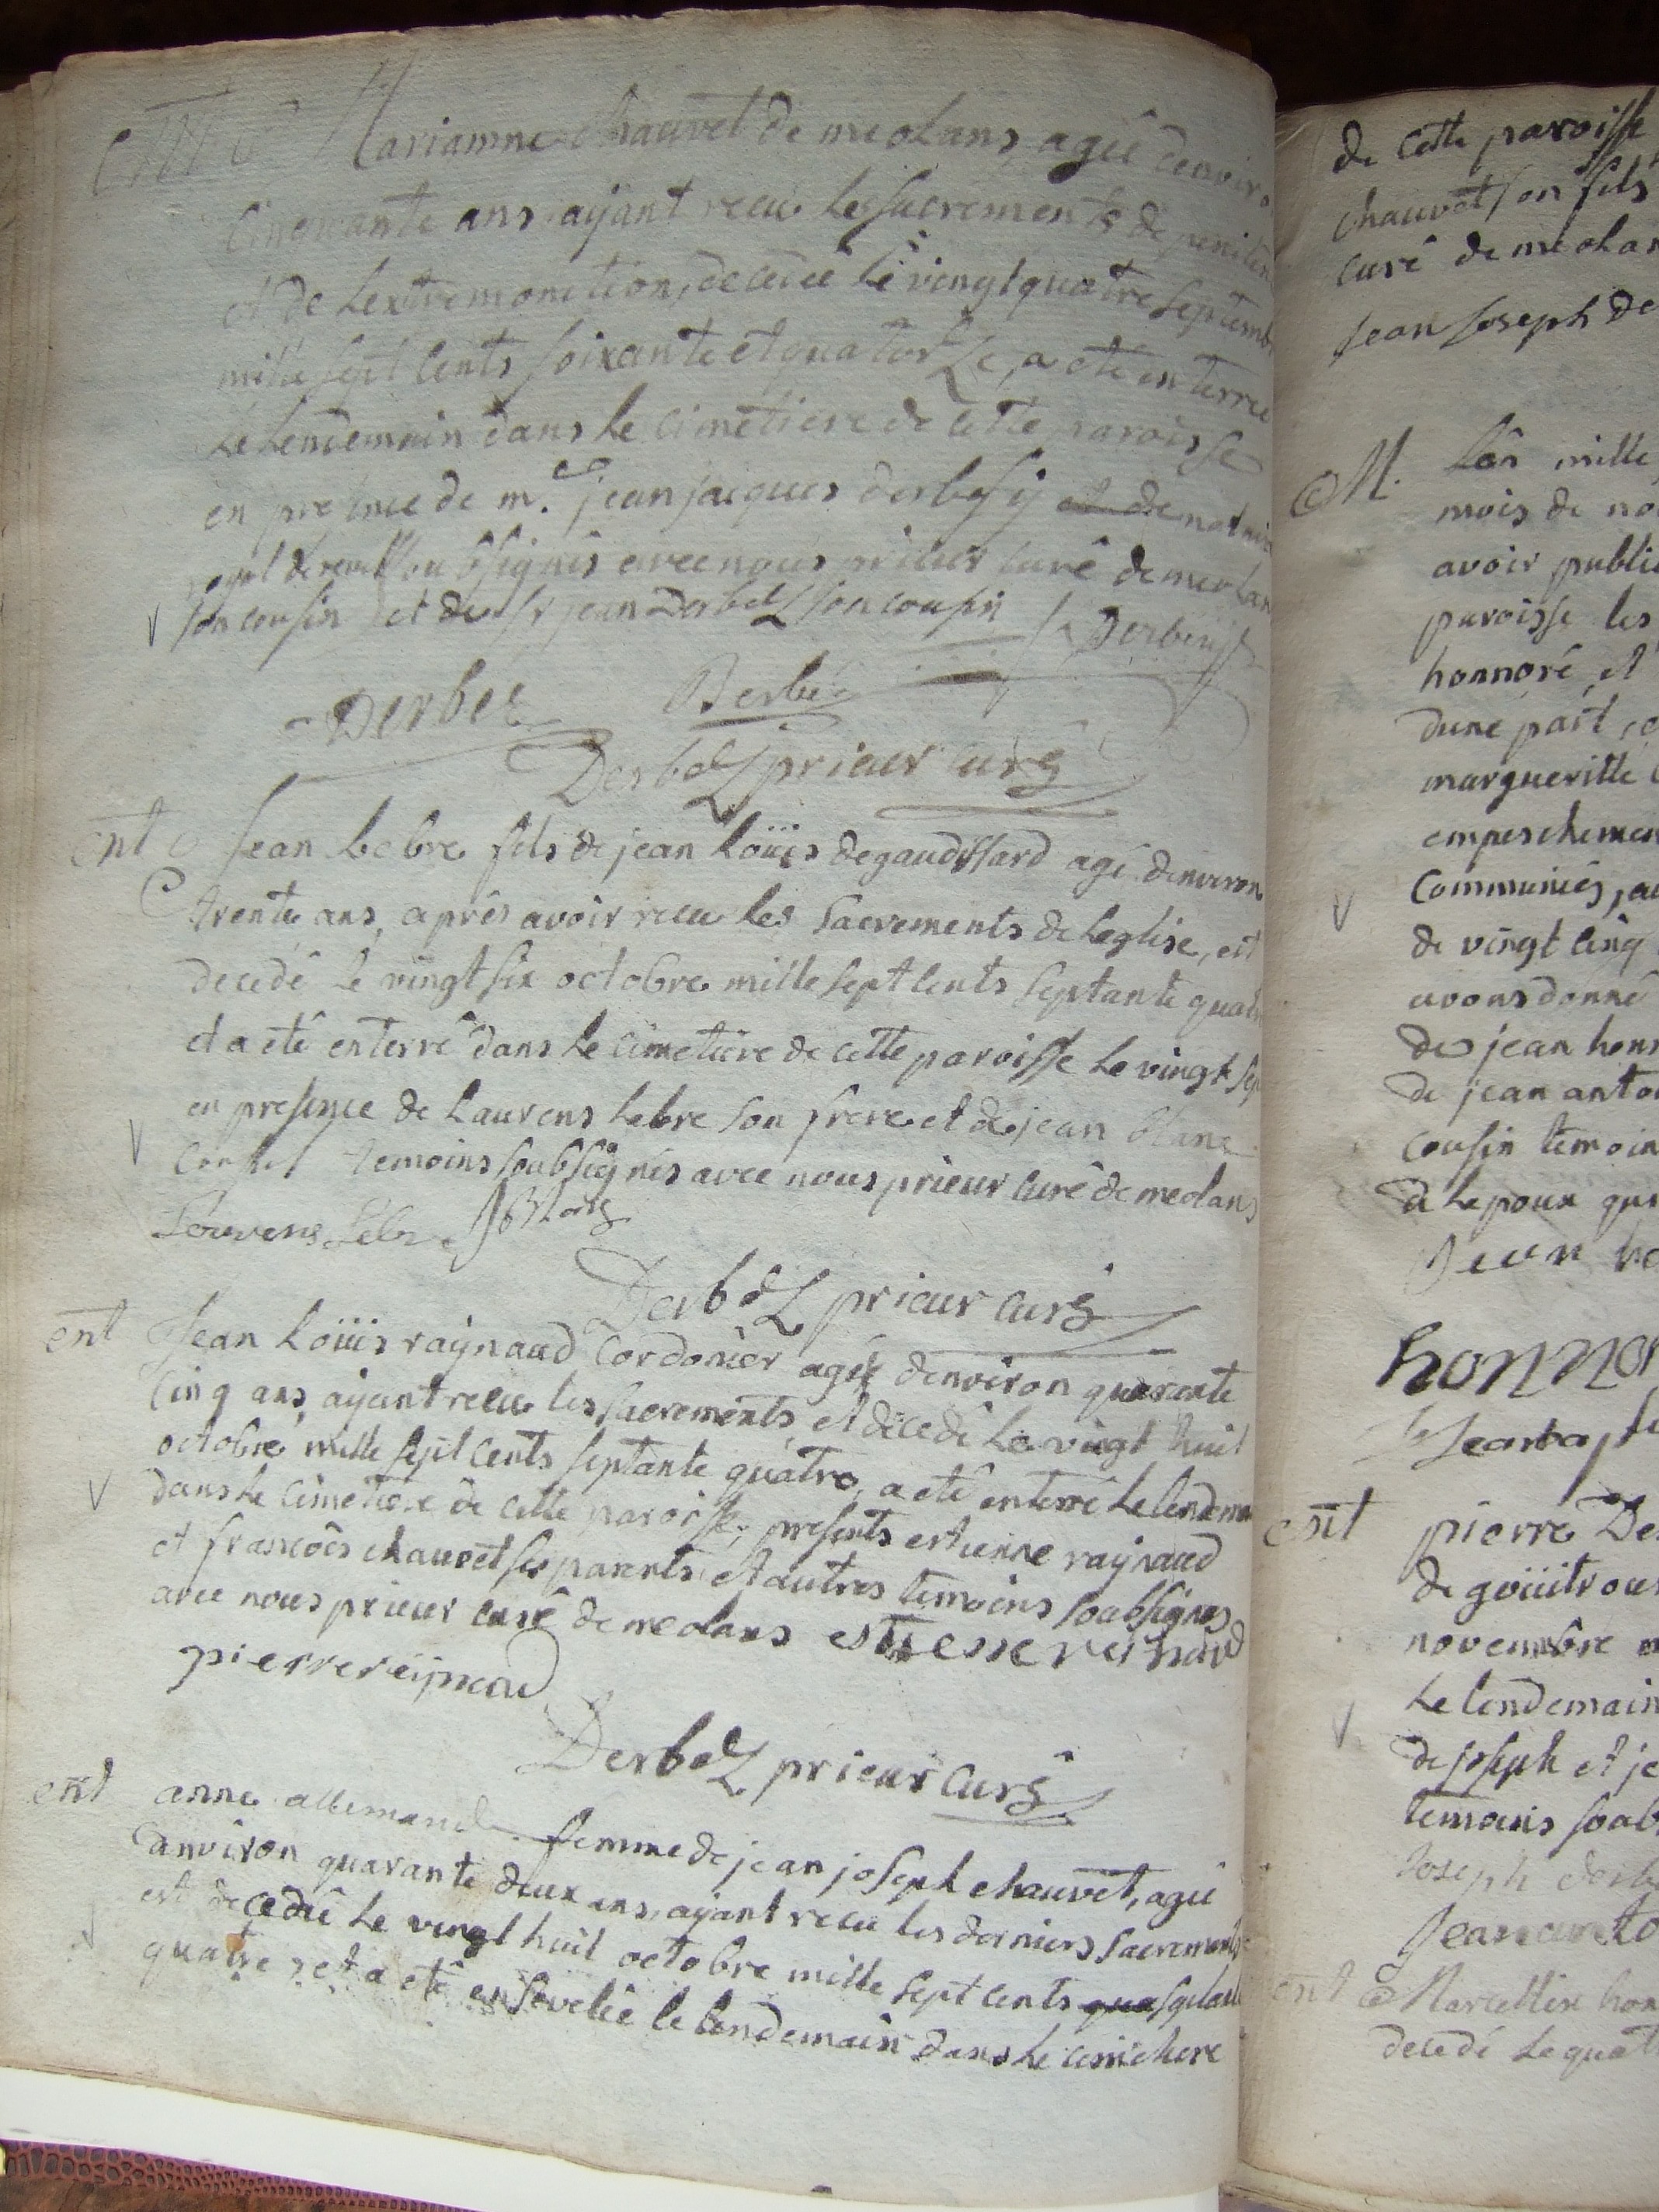 ent
Mariamne chauvet de meolans agée denviro
cinquante ans ayant recu les sacrements de peniten
et de lextremonction, decedée le vingt quatre septemb
mille sept cents soixante et quatorze, a eté enterrée
le lendemain dans le cimetiere de cette paroisse
en presence de mr. jean jacques derbesy et de notaire
royal de soubsignés avec nous prieur curé de meolans
son cousin et de sr jean Derbez son cousin Derbesy
Derbez Berbé
Derbez prieur curé
ent Jean Lebre fils de jean Loüis degaudissard agé denviron
trente ans, aprés avoir recu les sacrements de leglise, est
decedé le vingt six octobre mille sept cents septante quatr
et a eté enterré dans le cimetiere de cette paroisse le vingt sep
en presence de Laurens Lebre son frere et de jean blanc
temoins soubsignés avec nous prieur curé de meolans
Lourens Lebre J Blanc
Derbez prieur curé
ent Jean Loüis raynaud Cordonier agé denviron quarante
cinq ans, ayant recu les sacrements, et decedé le vingt huit
octobre mille sept cents septante quatre, a eté enterré le lendema
dans le cimetiere de cette paroisse, presents estienne raynaud
et francois chauvet ses parents et autres temoins soubsignés
avec nous prieur curé de meolans estiesse reinaud
pierre reijnaud
Derbez prieur curé
ent anne allemand femme de jean joseph chauvet, agée
danviron quarante deux ans, ayant recu les derniers sacrements
est decedée le vingt huit octobre mille sept cents qua septante
quatre et a eté ensevelie le lendemain dans le cimetiere
de cette paroisse
chauvet son fils
curé de meolan
jean joseph de
M. Lan mille
mois de no
avoir publié
paroisse les
honnoré et
dune part, e
margueritte
empeschemen
communiés, au
de vingt cinq
avons donné
de jean hon
de jean anto
cousin temoin
a lepoux qu
Jean ho
honnor
ent pierre De
de goüitrou
novembre m
le lendemain
de joseph et je
temoins soub
Joseph derb
Jean anto
ent Marcellin hon
decedé le quat